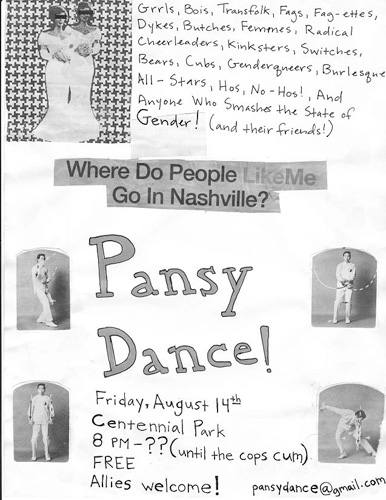 Grrls, Bois, Transfolk, Fags, Fag-ettes,
Dykes, Butches, Femmes, Radical
Cheerleaders, Kinksters, Switches,
Bears, Cubs, Genderqueers, Burlesque
All-Stars, Hos, No-Hos!, And
Anyone Who Smashes the State of
Gender! (and their friends!)
Where Do People Like Me
Go In Nashville?
Pansy
Dance!
Friday, August 14th
Centennial Park
8 PM - ?? (until the cops cum)
FREE
Allies welcome!
pansydance@gmail.com